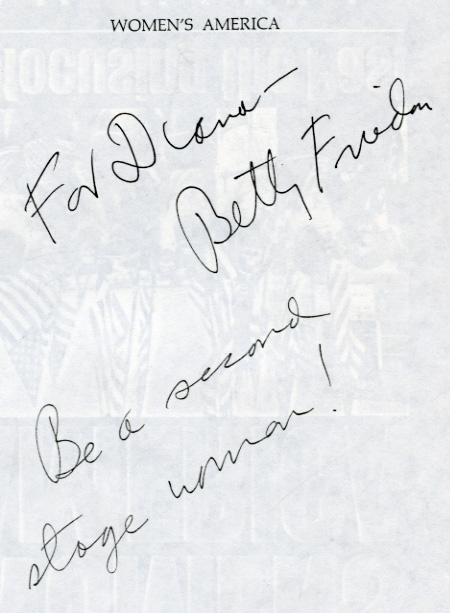 WOMEN'S AMERICA
For Diana—
Betty Friedan
Be a second
stage woman!